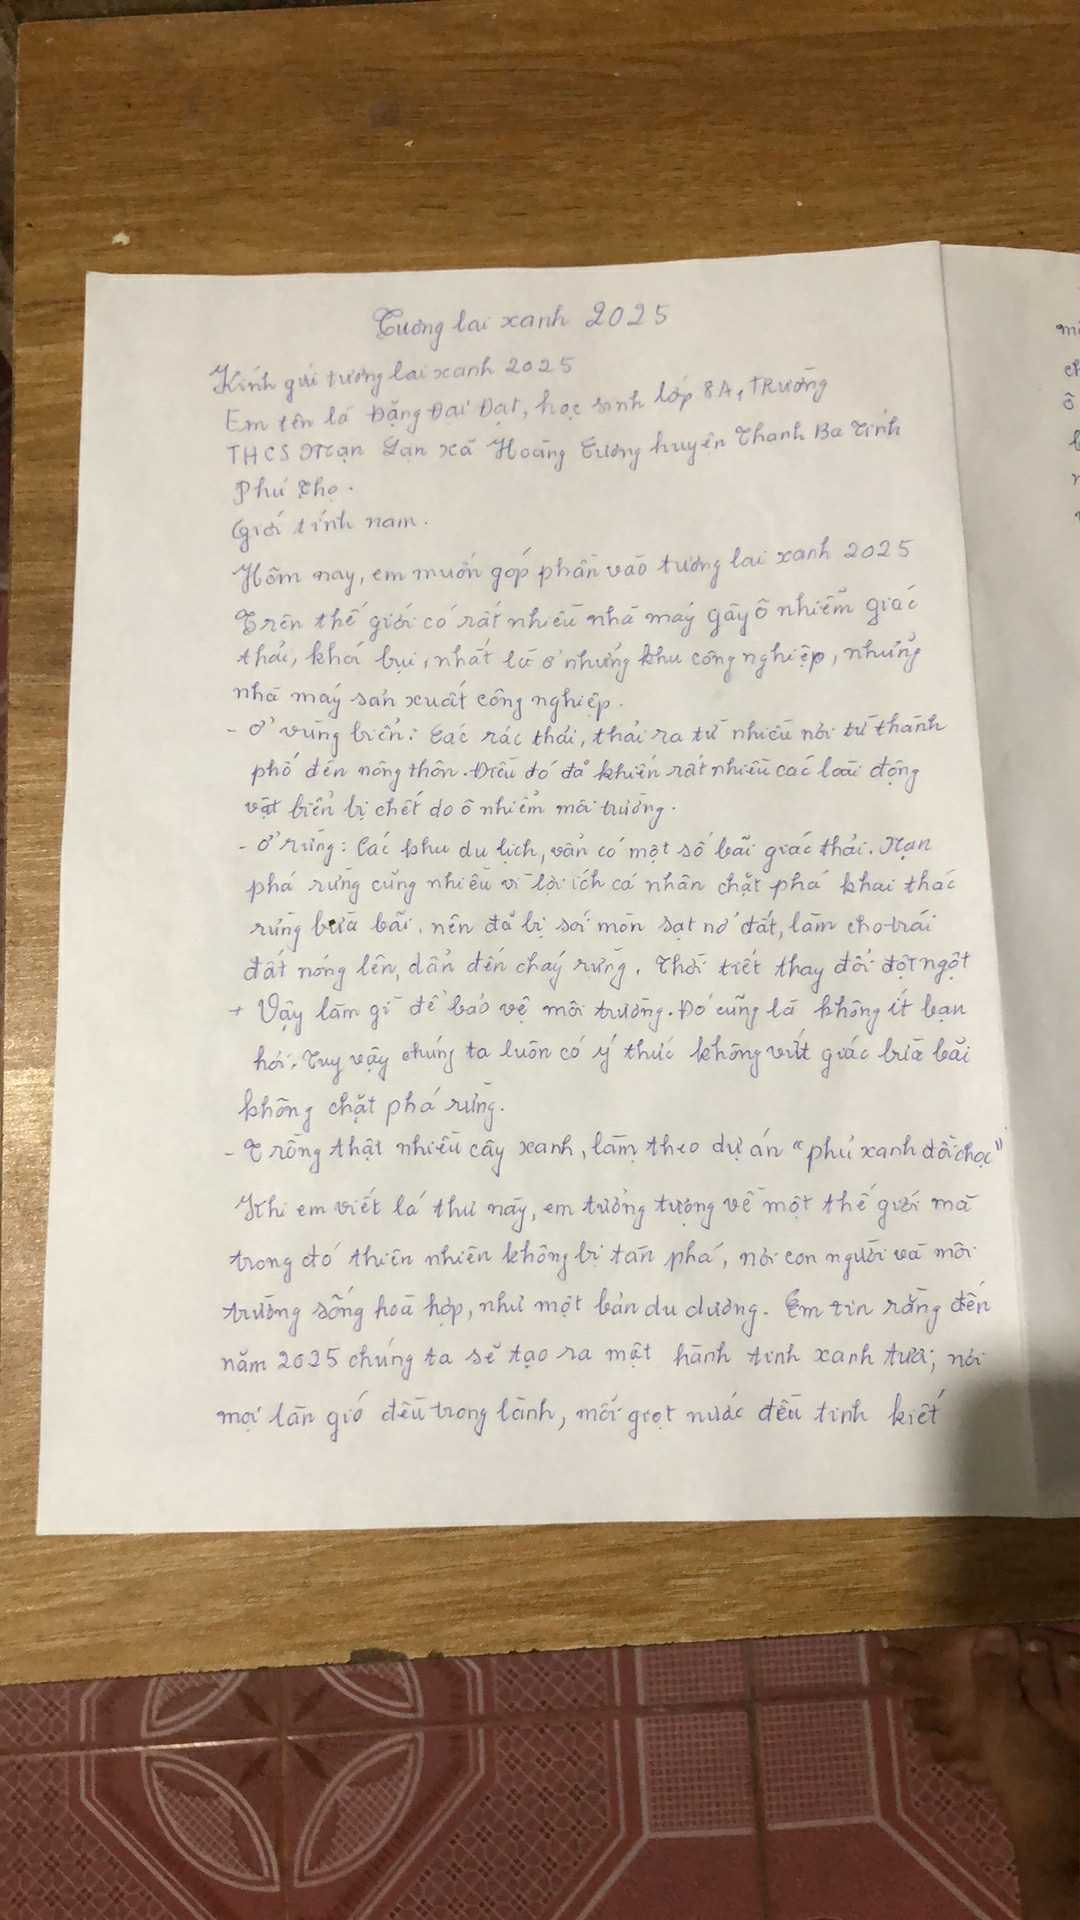 Tương lai xanh 2025
Kính gửi tương lai xanh 2025
Em tên là Đặng Đại Đạt, học sinh lớp 8A, TRường
THCS Mạn Lạn xã Hoàng Cương huyện Thanh Ba tỉnh
Phú Thọ.
Giới tính nam.
Hôm nay, em muốn góp phần vào tương lai xanh 2025
Trên thế giới có rất nhiều nhà máy gây ô nhiễm giác
thải, khói bụi, nhất là ở những khu công nghiệp, những
nhà máy sản xuất công nghiệp.
- ở vùng biển: Các rác thải, thải ra từ nhiều nơi từ thành
phố đến nông thôn. Điều đó đã khiến rất nhiều các loài động
vật biển bị chết do ô nhiễm môi trường.
- ở rừng: Các khu du lịch, vẫn có một số bãi giác thải. Nạn
phá rừng cũng nhiều vì lợi ích cá nhân chặt phá khai thác
rừng bừa bãi, nên đã bị sói mòn sạt nở đất, làm cho trái
đất nóng lên, dẫn đến cháy rừng. Thời tiết thay đổi đột ngột
+ Vậy làm gì để bảo vệ môi trường. Đó cũng là không ít bạn
hỏi. Tuy vậy chúng ta luôn có ý thức không vứt giác bừa bãi
không chặt phá rừng.
- Trồng thật nhiều cây xanh, làm theo dự án "phủ xanh đồi chọc"
Khi em viết lá thư này, em tưởng tượng về một thế giới mà
trong đó thiên nhiên không bị tàn phá, nơi con người và môi
trường sống hoà hợp, như một bản du dương. Em tin rằng đến
năm 2025 chúng ta sẽ tạo ra một hành tinh xanh tươi, nơi
mọi làn gió đều trong lành, mỗi giọt nước đều tinh kiết